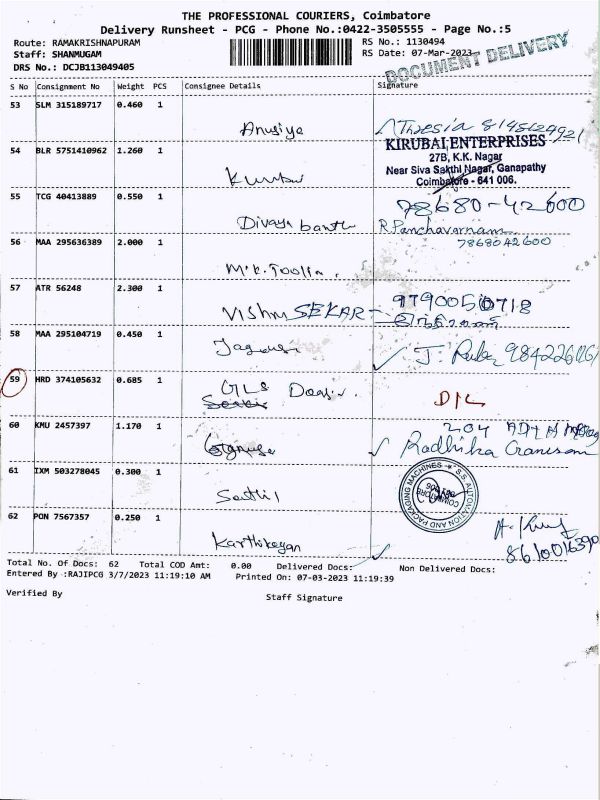 THE PROFESSIONAL COURIERS, Coimbatore
Delivery Runsheet - PCG - Phone No.:0422-3505555 - Page No.:5
Route: RAMAKRISHNAPURAM
Staff: SHANMUGAM
DRS No.: DCJB113049405
RS No.: 1130494
RS Date: 07-Mar-2023
DOCUMENT DELIVERY
S No Consignment No Weight PCS Consignee Details Signature
53 SLM 315189717 0.460 1
Anusiya
KIRUBAI ENTERPRISES
27B, K.K. Nagar
Near Siva Sakthi Nagar, Ganapathy
Coimbatore - 641 006.
54 BLR 5751410962 1.260 1
55 TCG 40413889 0.550 1
78680-42600
R. Panchavarnam
7868042600
56 MAA 295636389 2.000 1
57 ATR 56248 2.300 1
Vishnu SEKAR
9790050718
58 MAA 295104719 0.450 1
59 HRD 374105632 0.685 1
GLS
60 KMU 2457397 1.170 1
204
Radhika Ganesan
61 IXM 503278045 0.300 1
Senthil
S.S. AUTOMATION AND PACKAGING MACHINES
62 PON 7567357 0.250 1
Karthikeyan
8610016390
Total No. Of Docs: 62 Total COD Amt: 0.00 Delivered Docs: Non Delivered Docs:
Entered By :RAJIPCG 3/7/2023 11:19:10 AM Printed On: 07-03-2023 11:19:39
Verified By
Staff Signature